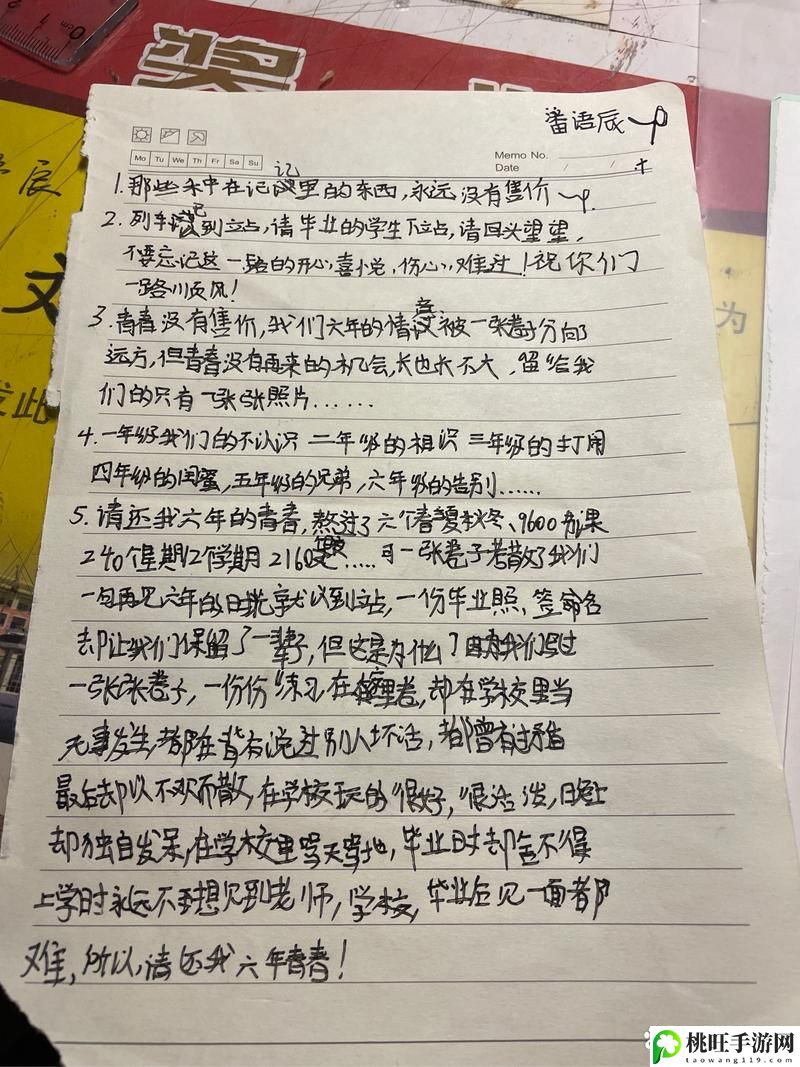 奖
番语辰
Mo Tu We Th Fr Sa Su
Memo No.
Date / /
记
1.那些存在记里的东西,永远没有售价
2.列车已到立占,请毕业的学生下立占,请回头望望,
不要忘记这一路的开心,喜悦,伤心,难过!祝你们
一路川页风!
3.青春没有售价,我们六年的情被一张卷子分向
远方,但青春没有再来的机会,长也长不大,留给我
们的只有一张张照片......
4.一年级我们的不认识 二年级的相识 三年级的打闹
四年级的闺蜜,五年级的兄弟,六年级的告别......
5.请还我六年的青春,熬过了六个春夏秋冬、9600节课
240个星期12个学期2160.....可一张卷子考散了我们
一句再见六年的时光就到立占,一份毕业照、签命名
去即让我们保留了一辈子,但这是为什么?因为我们写过
一张张卷子,一份份练习在里卷,却在学校里当
无事发生,都在背后说过别人坏话,都曾有过矛盾
最后却以不欢而散,在学校玩的很好,很活泼,晚上
却独自发呆,在学校里骂天骂地,毕业时却舍不得
上学时永远不想见到老师,学校,毕业后见一面都
难,所以,请还我六年青春!
文
发此
为
桃旺手游网
taowang119.com